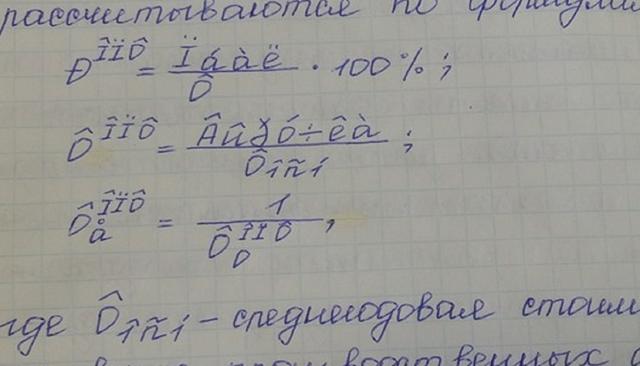 рассчитываются по формулам
Ð^ÎÏÔ = Ïáàë / Ô · 100%;
Ô^ÎÏÔ = Âûðó÷êà / Ôîñí ;
Ô_å^ÎÏÔ = 1 / Ô_О^ÎÏÔ ,
где Ôîñí – среднегодовая стоим